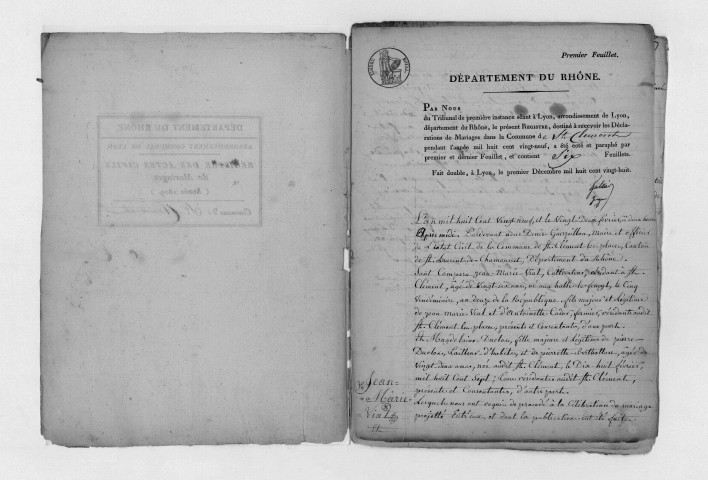 Premier Feuillet.
DÉPARTEMENT DU RHÔNE.
PAR NOUS
du Tribunal de première instance séant à Lyon, arrondissement de Lyon,
département du Rhône, le présent REGISTRE, destiné à recevoir les Décla-
rations de Mariages dans la Commune de St. Clément
pendant l'année mil huit cent vingt-neuf, a été coté et paraphé par
premier et dernier Feuillet, et contient Six Feuillets.
Fait double, à Lyon, le premier Décembre mil huit cent vingt-huit.
L'an mil huit Cent Vingt neuf, et le Vingt deux février, à deux heures
Après midi. Pardevant nous Denis Maire et officier
de l'état Civil de la Commune de St. Clément les places, Canton
de St. Laurent de Chamousset, Département du Rhône.
Sont Comparus Jean-Marie Vial, Cultivateur, résidant à St.
Clément, âgé de Vingt six ans, né le Cinq
Vendémiaire, an douze de la République, fils majeur et légitime
de jean marie Vial et d'Antoinette fermier, résidants audit
St. Clément les places, présents et Consentants, d'une part.
Et Magdelaine Duclos, fille majeure et légitime de pierre
Duclos, tailleur d'habits, et de pierrette Berthollon, âgée de
Vingt deux ans, née audit St. Clément, le Dix huit février,
mil huit Cent Sept; tous résidants audit St. Clément,
présents et Consentants, d'autre part.
Lesquels nous ont requis de procéder à la Célébration du mariage
projetté entr'eux et dont la publication ont été faites
Jean-
Marie
Vial
DÉPARTEMENT DU RHÔNE.
ARRONDISSEMENT COMMUNAL DE LYON.
REGISTRE DES ACTES CIVILS
de Mariages
(Année 1829)
Commune de St. Clément